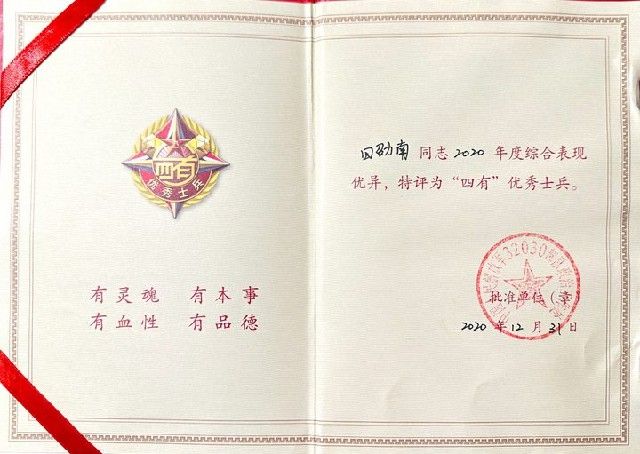 四有
优秀士兵
有灵魂 有本事
有血性 有品德
同志2020年度综合表现
优异，特评为“四有”优秀士兵。
32030部队
批准单位（章）
2020年12月31日